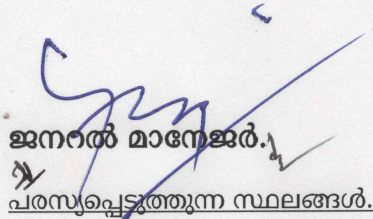 ജനറൽ മാനേജർ.
പരസ്യപ്പെടുത്തുന്ന സ്ഥലങ്ങൾ.